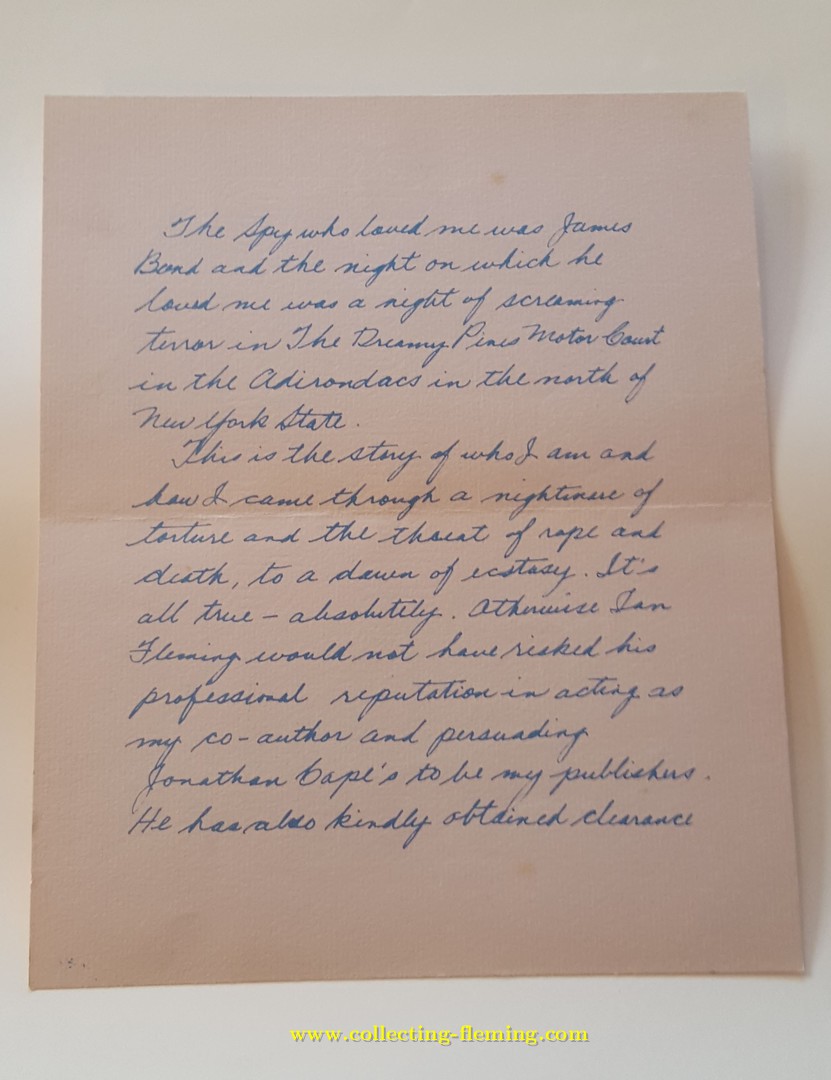 The Spy who loved me was James
Bond and the night on which he
loved me was a night of screaming
terror in The Dreamy Pines Motor Court
in the Adirondacs in the north of
New York State.
This is the story of who I am and
how I came through a nightmare of
torture and the threat of rape and
death, to a dawn of ecstasy. It's
all true – absolutely. Otherwise Ian
Fleming would not have risked his
professional reputation in acting as
my co-author and persuading
Jonathan Cape's to be my publishers.
He has also kindly obtained clearance
www.collecting-fleming.com